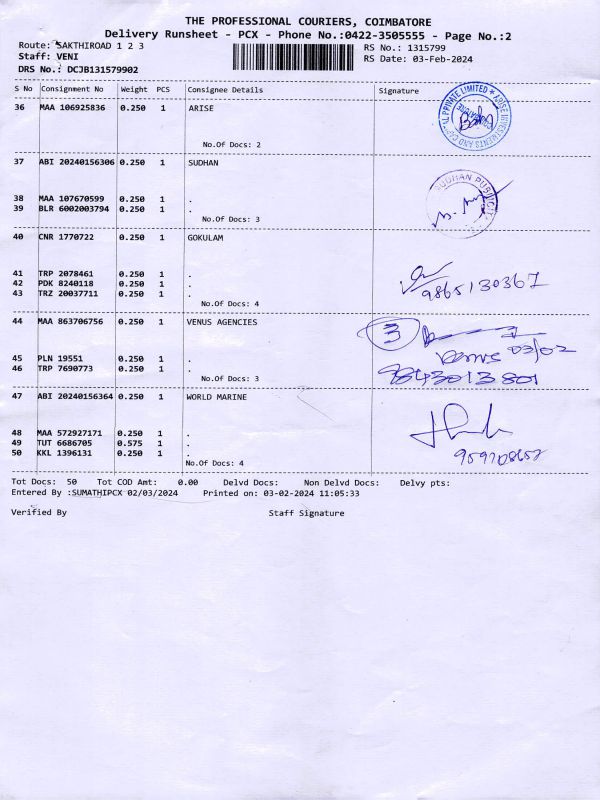 THE PROFESSIONAL COURIERS, COIMBATORE
Delivery Runsheet - PCX - Phone No.:0422-3505555 - Page No.:2
Route: SAKTHIROAD 1 2 3 RS No.: 1315799
Staff: VENI RS Date: 03-Feb-2024
DRS No.: DCJB131579902
S No Consignment No Weight PCS Consignee Details Signature
36 MAA 106925836 0.250 1 ARISE
No.Of Docs: 2
37 ABI 20240156306 0.250 1 SUDHAN
38 MAA 107670599 0.250 1 .
39 BLR 6002003794 0.250 1 .
No.Of Docs: 3
SUDHAN PUBLICIT
40 CNR 1770722 0.250 1 GOKULAM
41 TRP 2078461 0.250 1 .
42 PDK 8240118 0.250 1 .
43 TRZ 20037711 0.250 1 .
No.Of Docs: 4
9865130367
44 MAA 863706756 0.250 1 VENUS AGENCIES
3
45 PLN 19551 0.250 1 .
46 TRP 7690773 0.250 1 .
No.Of Docs: 3
Venus 03/02
9843013801
47 ABI 20240156364 0.250 1 WORLD MARINE
48 MAA 572927171 0.250 1 .
49 TUT 6686705 0.575 1 .
50 KKL 1396131 0.250 1 .
No.Of Docs: 4
Tot Docs: 50 Tot COD Amt: 0.00 Delvd Docs: Non Delvd Docs: Delvy pts:
Entered By :SUMATHIPCX 02/03/2024 Printed on: 03-02-2024 11:05:33
Verified By Staff Signature